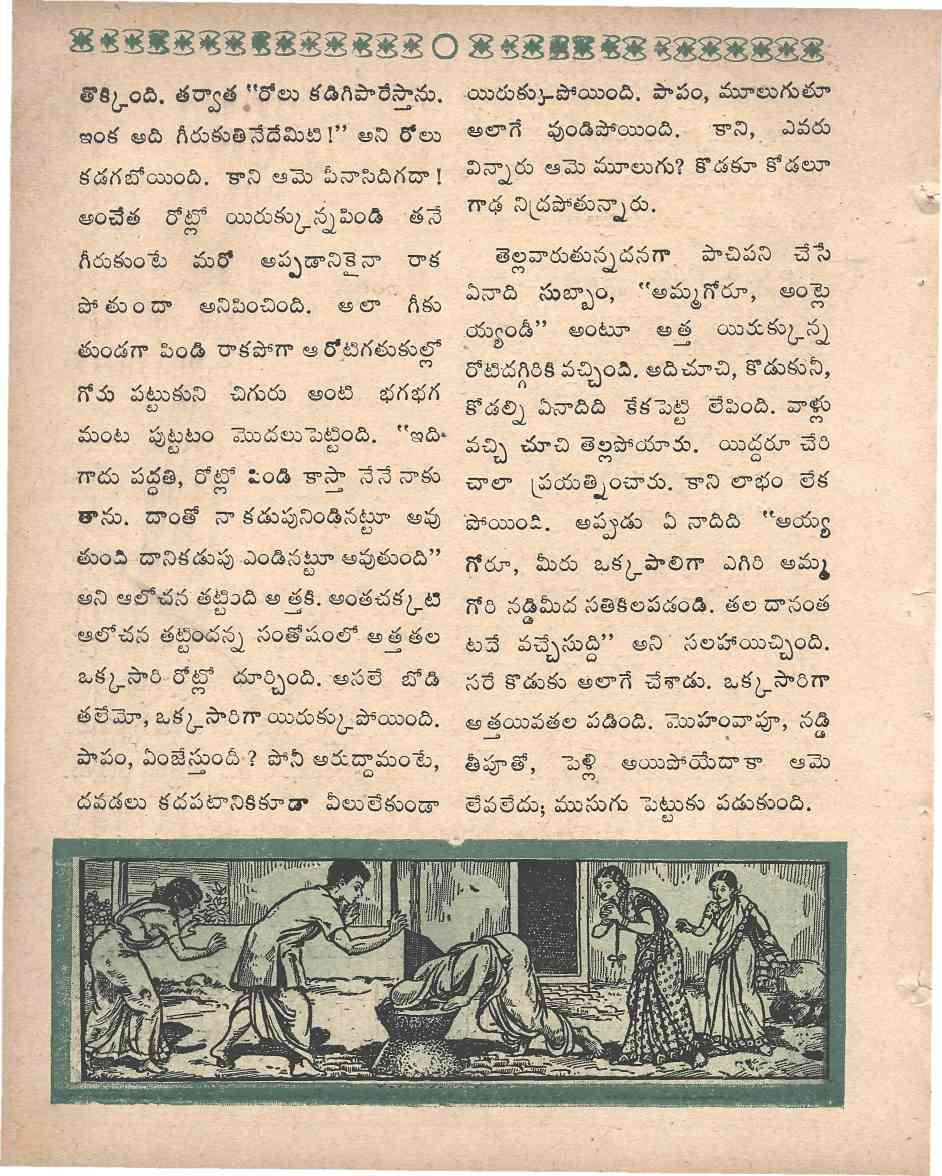 తొక్కింది. తర్వాత "రోలు కడిగిపారేస్తాను.
ఇంక అది గీరుకుతినేదేమిటి!" అని రోలు
కడగబోయింది. కాని ఆమె పీనాసిదిగదా!
అంచేత రోట్లో యిరుక్కున్నపిండి తనే
గీరుకుంటే మరో అప్పడానికైనా రాక
పోతుందా అనిపించింది. అలా గీకు
తుండగా పిండి రాకపోగా ఆ రోటిగతుకుల్లో
గోరు పట్టుకుని చిగురు అంటి భగభగ
మంట పుట్టటం మొదలుపెట్టింది. "ఇది
గాదు పద్ధతి, రోట్లో పిండి కాస్తా నేనే నాకు
తాను. దాంతో నా కడుపునిండినట్టూ అవు
తుంది దానికడుపు ఎండినట్టూ అవుతుంది"
అని ఆలోచన తట్టింది అత్తకి. అంతచక్కటి
ఆలోచన తట్టిందన్న సంతోషంలో అత్త తల
ఒక్కసారి రోట్లో దూర్చింది. అసలే బోడి
తలేమో, ఒక్కసారిగా యిరుక్కుపోయింది.
పాపం, ఏంజేస్తుందీ? పోనీ అరుద్దామంటే,
దవడలు కదపటానికికూడా వీలులేకుండా
యిరుక్కుపోయింది. పాపం, మూలుగుతూ
అలాగే వుండిపోయింది. కాని, ఎవరు
విన్నారు ఆమె మూలుగు? కొడకూ కోడలూ
గాఢ నిద్రపోతున్నారు.
తెల్లవారుతున్నదనగా పాచిపని చేసే
ఏనాది సుబ్బాం, "అమ్మగోరూ, అంట్లె
య్యండీ" అంటూ అత్త యిరుక్కున్న
రోటిదగ్గిరికి వచ్చింది. అదిచూచి, కొడుకునీ,
కోడల్ని ఏనాదిది కేకపెట్టి లేపింది. వాళ్లు
వచ్చి చూచి తెల్లపోయారు. యిద్దరూ చేరి
చాలా ప్రయత్నించారు. కాని లాభం లేక
పోయింది. అప్పుడు ఏనాదిది "అయ్య
గోరూ, మీరు ఒక్కపాలిగా ఎగిరి అమ్మ
గోరి నడ్డిమీద సతికిలపడండి. తల దానంత
టవే వచ్చేసుద్ది" అని సలహాయిచ్చింది.
సరే కొడుకు అలాగే చేశాడు. ఒక్కసారిగా
అత్తయివతల పడింది. మొహంవాపూ, నడ్డి
తీపూతో, పెళ్లి అయిపోయేదాకా ఆమె
లేవలేదు; ముసుగు పెట్టుకు పడుకుంది.